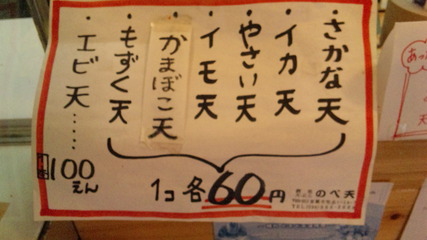 さかな天
イカ天
やさい天
イモ天
かまぼこ天
もずく天
エビ天……
1コ各60円
100えん
のべ天